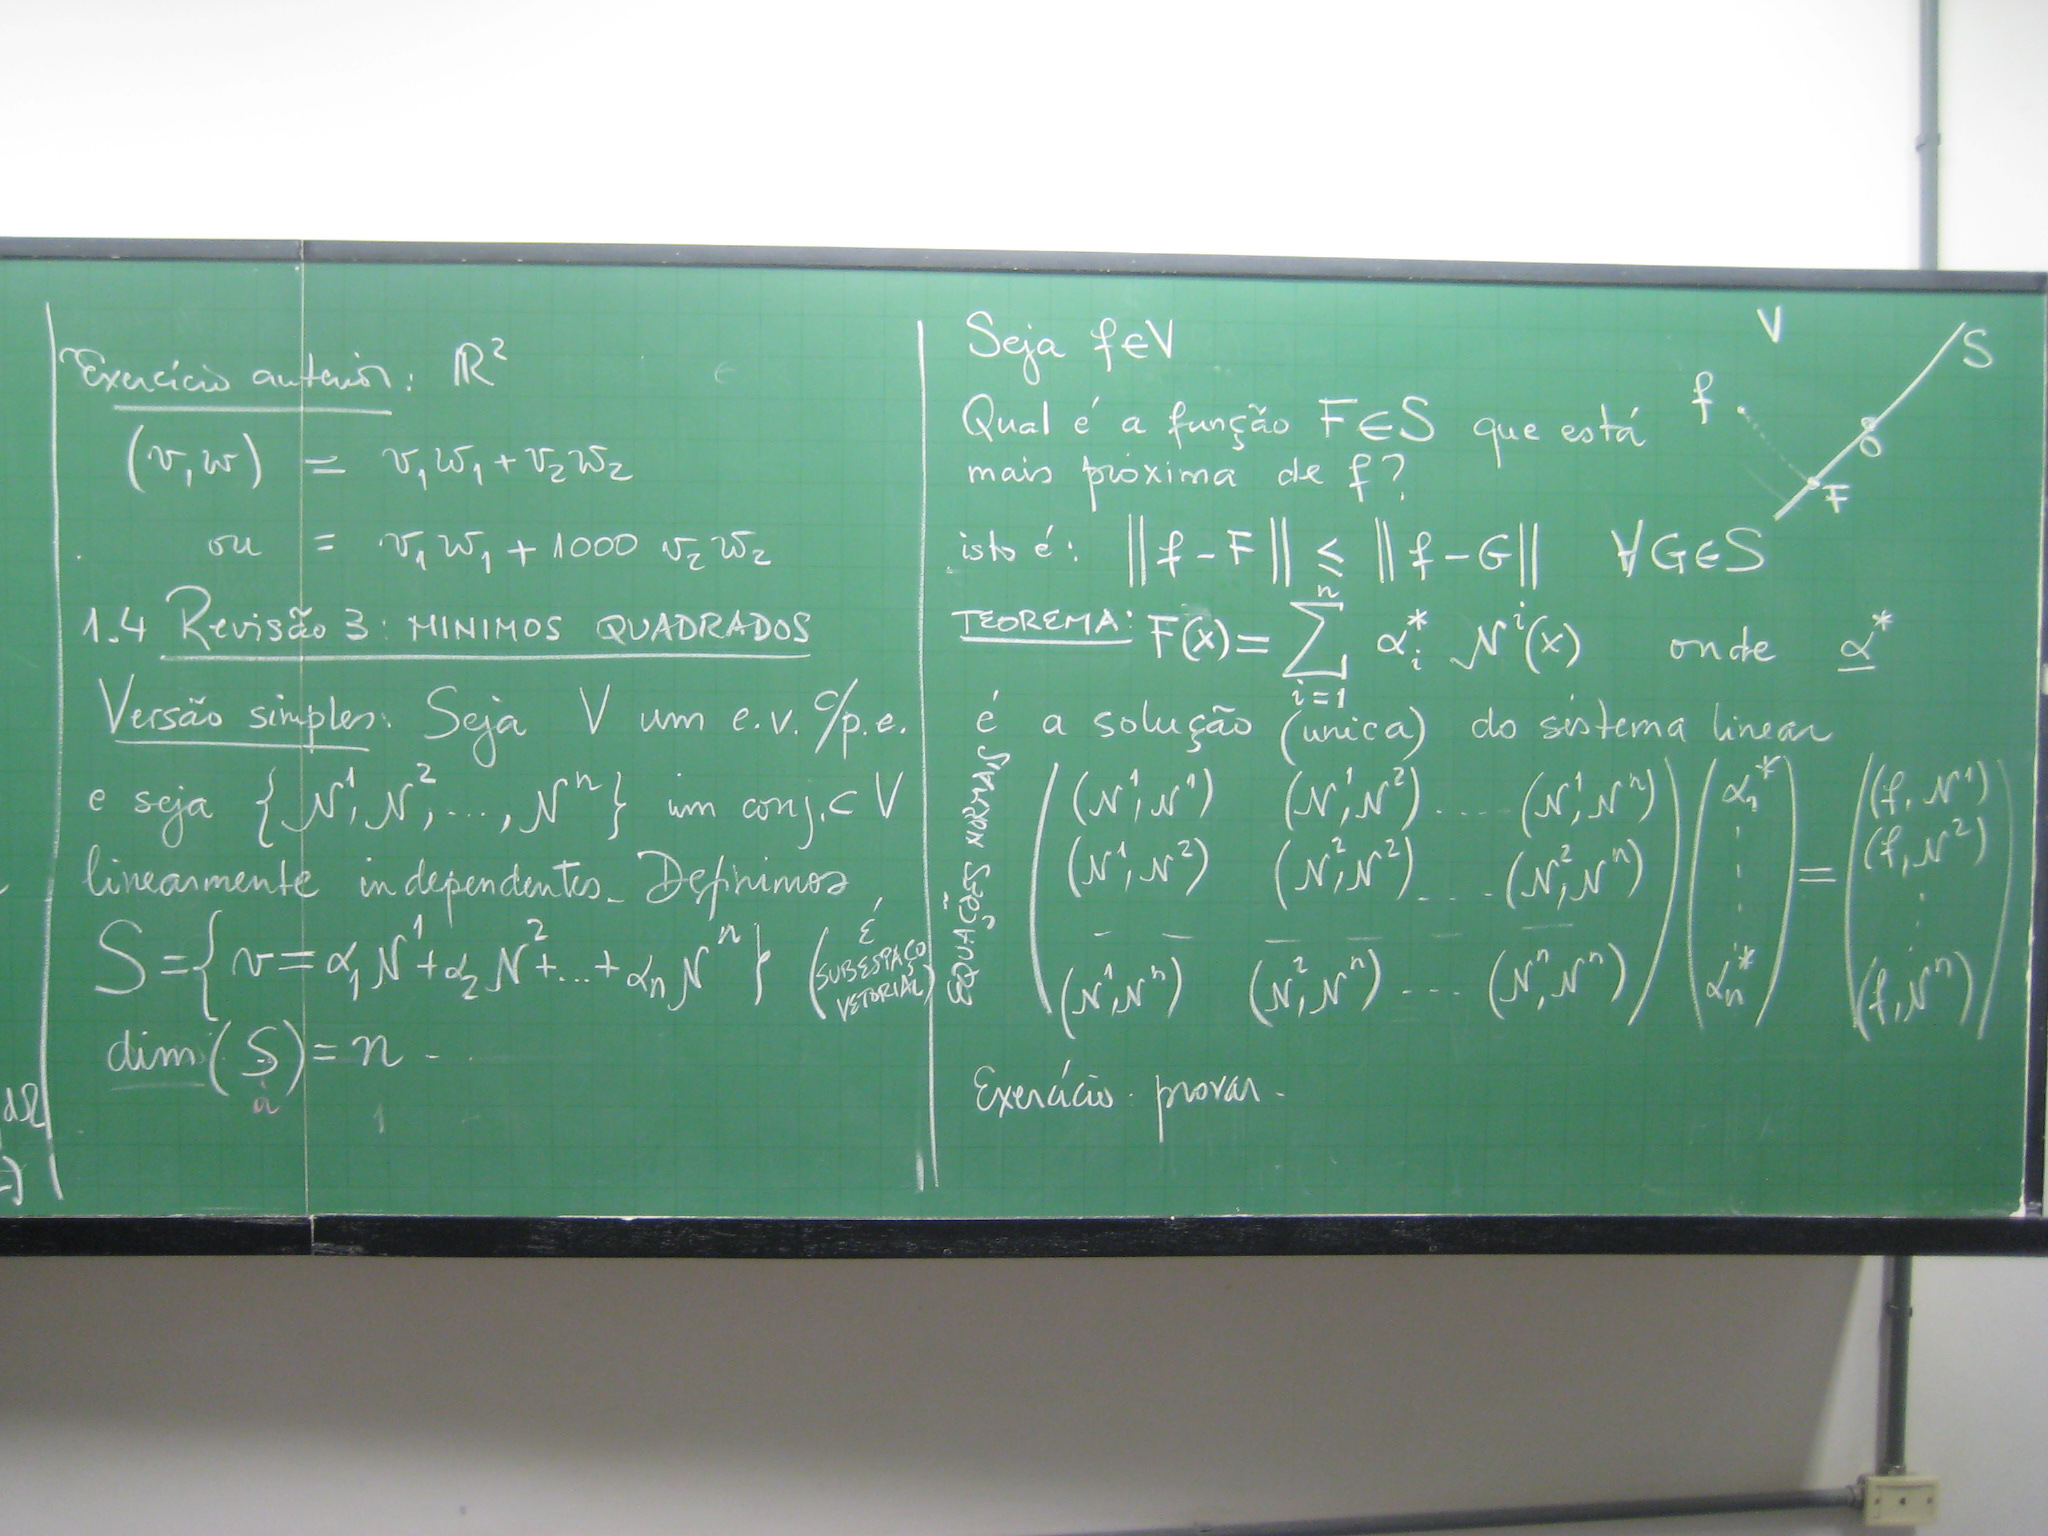 Exercício anterior: ℝ²
(v,w) = v₁w₁+v₂w₂
ou = v₁w₁+1000 v₂w₂
1.4 Revisão 3: MINIMOS QUADRADOS
Versão simples: Seja V um e.v. c/p.e.
e seja {N¹, N², ..., Nⁿ} um conj. ⊂ V
linearmente independentes. Definimos
S={v=α₁N¹+α₂N²+...+αₙNⁿ} (É SUBESPAÇO VETORIAL)
dim(S)=n
Seja f∈V
Qual é a função F∈S que está
mais próxima de f?
isto é: ||f-F|| ≤ ||f-G|| ∀G∈S
TEOREMA: F(x)=∑ⁿᵢ₌₁ αᵢ* Nⁱ(x) onde α*
é a solução (unica) do sistema linear
EQUAÇÕES NORMAIS
(N¹,N¹) (N¹,N²) .... (N¹,Nⁿ) α₁* (f,N¹)
(N¹,N²) (N²,N²) .... (N²,Nⁿ) = (f,N²)
(N¹,Nⁿ) (N²,Nⁿ) .... (Nⁿ,Nⁿ) αₙ* (f,Nⁿ)
Exercício. provar.
V
S
f
O
F